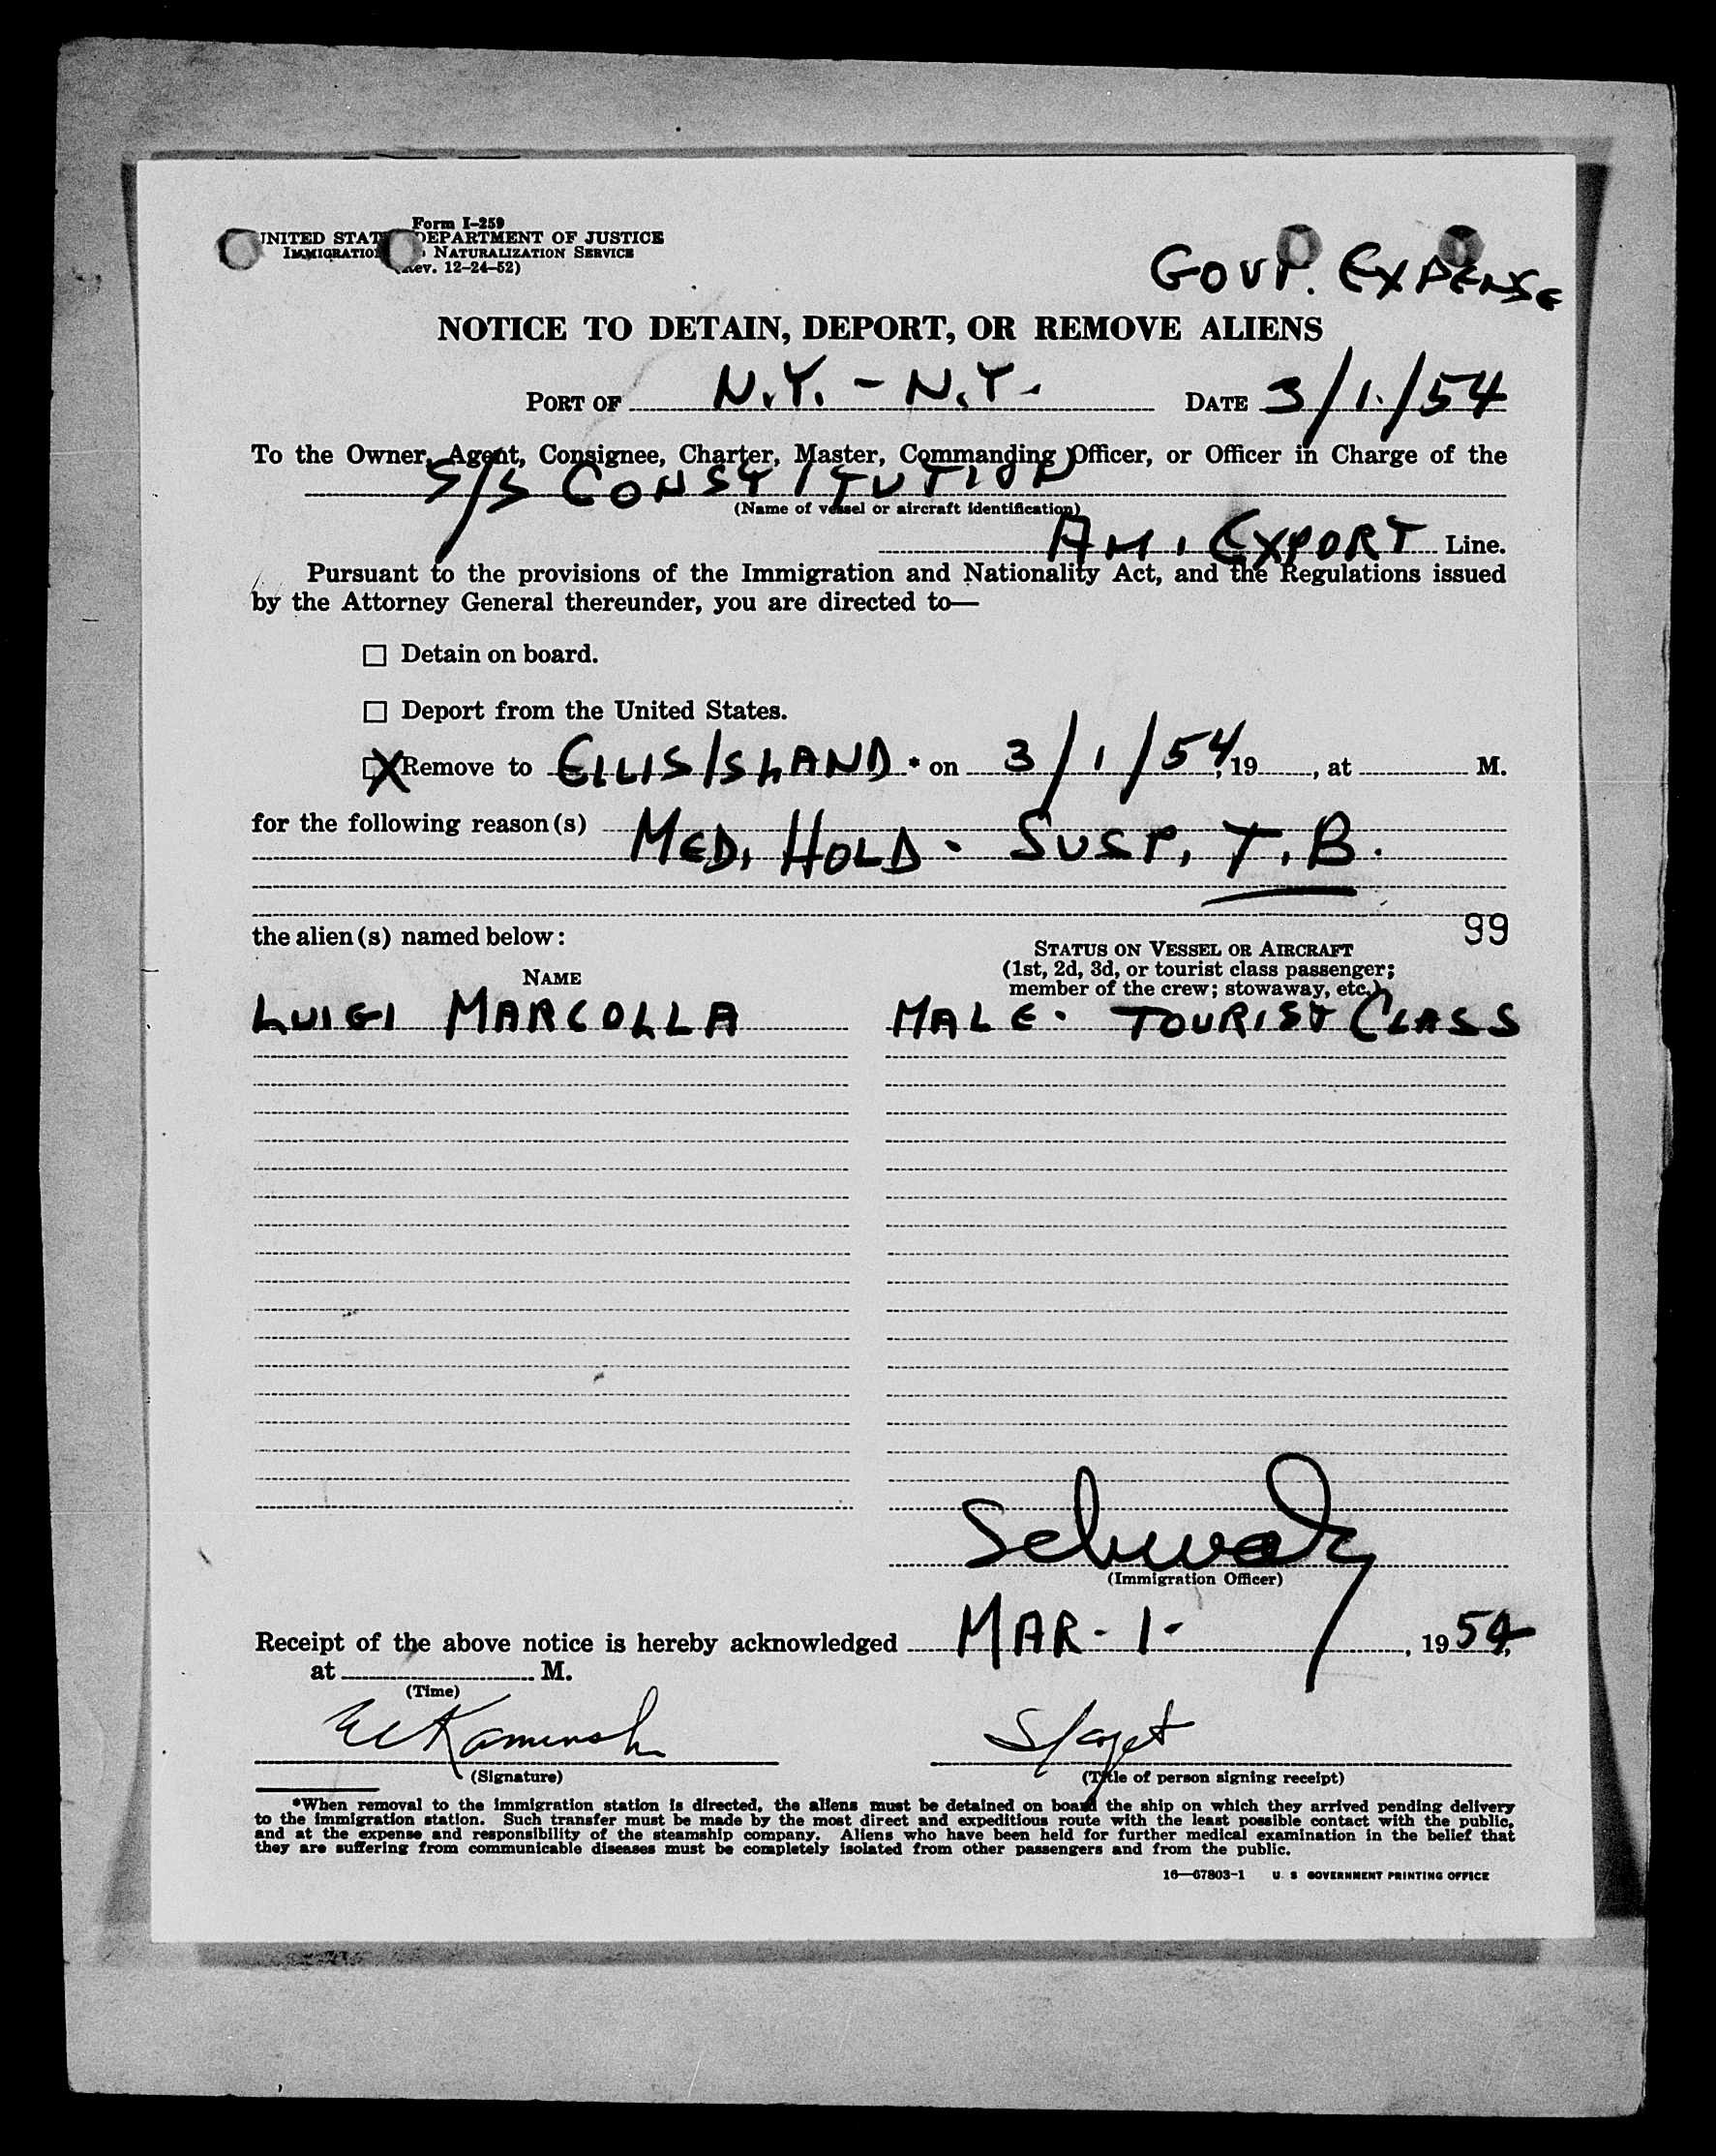 Form I-259
UNITED STAT DEPARTMENT OF JUSTICE
IMMIGRATIO NATURALIZATION SERVICE
(Rev. 12-24-52)
GOVT. EXPENSE
NOTICE TO DETAIN, DEPORT, OR REMOVE ALIENS
PORT OF N.Y. - N.Y. DATE 3/1/54
To the Owner, Agent, Consignee, Charter, Master, Commanding Officer, or Officer in Charge of the
S/S CONSTITUTION
(Name of vessel or aircraft identification)
AM. EXPORT Line.
Pursuant to the provisions of the Immigration and Nationality Act, and the Regulations issued
by the Attorney General thereunder, you are directed to—
☐ Detain on board.
☐ Deport from the United States.
☒ Remove to ELLIS ISLAND * on 3/1/54, 19, at M.
for the following reason(s)
MED. HOLD - SUSP. T.B.
the alien(s) named below:
99
NAME
STATUS ON VESSEL OR AIRCRAFT
(1st, 2d, 3d, or tourist class passenger;
member of the crew; stowaway, etc.)
LUIGI MARCOLLA MALE. TOURIST CLASS
Schwartz
(Immigration Officer)
Receipt of the above notice is hereby acknowledged MAR - 1 - , 1954,
at M.
(Time)
(Signature)
(Title of person signing receipt)
*When removal to the immigration station is directed, the aliens must be detained on board the ship on which they arrived pending delivery
to the immigration station. Such transfer must be made by the most direct and expeditious route with the least possible contact with the public,
and at the expense and responsibility of the steamship company. Aliens who have been held for further medical examination in the belief that
they are suffering from communicable diseases must be completely isolated from other passengers and from the public.
16—67803-1 U. S. GOVERNMENT PRINTING OFFICE